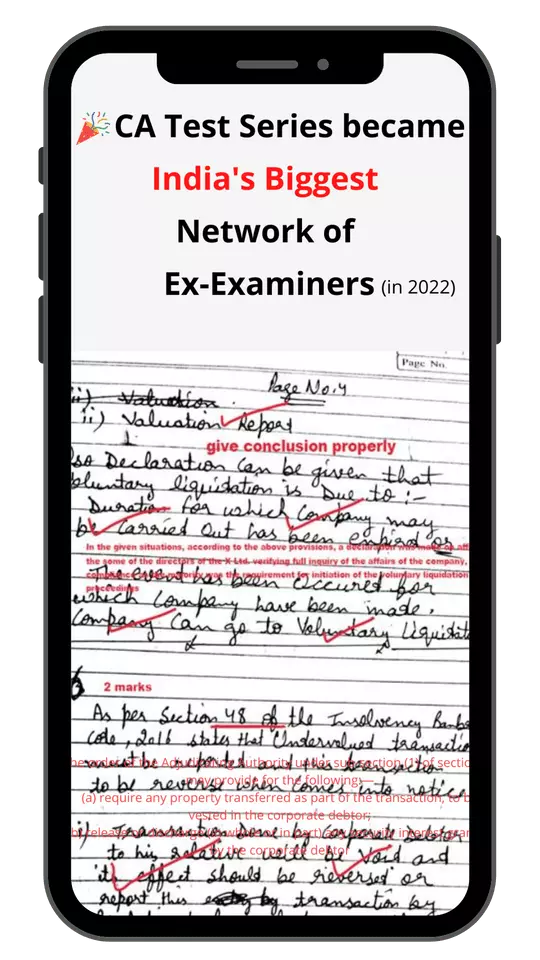 CA Test Series became
India's Biggest
Network of
Ex-Examiners (in 2022)
Page No.
Page No. 4
ii) Valuation.
ii) Valuation Report
give conclusion properly
so Declaration can be given that
oluntary liquidation is Due to :-
Duration for which Company may
be carried out has been expired or
In the given situations, according to the above provisions, a declaration was made on aff
the some of the directors of the X Ltd. verifying full inquiry of the affairs of the company,
the requirement for initiation of the voluntary liquidation
proceedings
The event has been occured for
which Company have been made.
Company Can go to Voluntary Liquidat
2 marks
As per Section 48 of the Insolvency Bank
Code, 2016 states that Undervalued transactio
he order of the Adjudicating Authority under sub-section (1) of sectio
must be reported and this transaction
may provide for the following:—
to be reverse when comes into notice
(a) require any property transferred as part of the transaction, to b
vested in the corporate debtor;
i) Transaction Done by Corporate Debtor
to his relative will be Void and
by the corporate debtor
it's effect should be reversed or
report this by transaction by